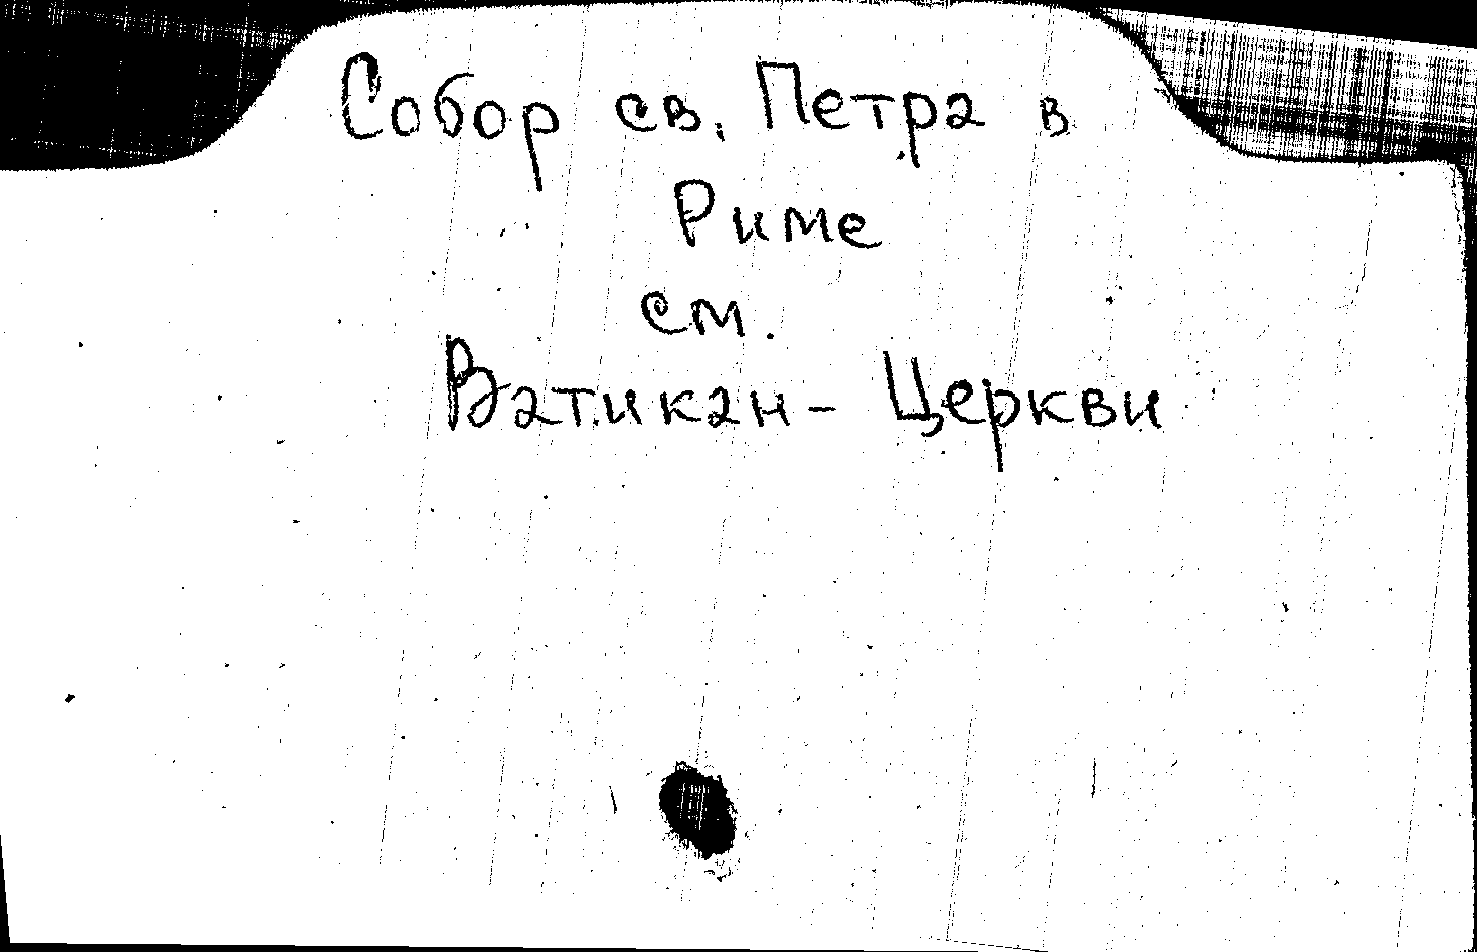 Собор св. Петра в
Риме
см.
Ватикан - Церкви